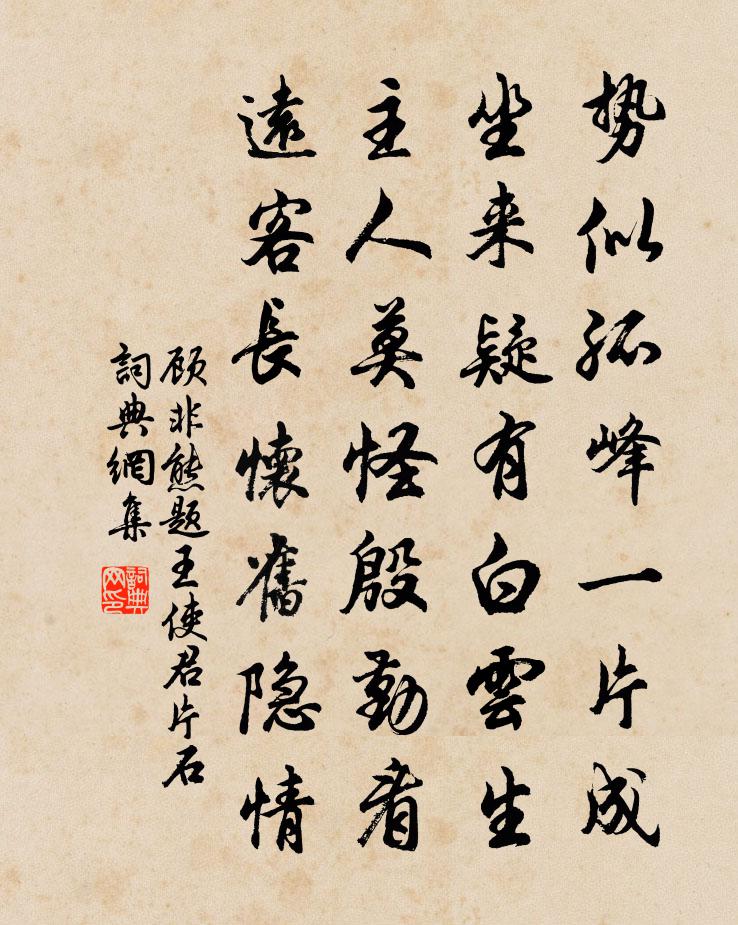 势似孤峰一片成
坐来疑有白雲生
主人莫怪殷勤看
遠客長懷舊隐情
顾非熊题王使君片石
詞典網集
詞典網印